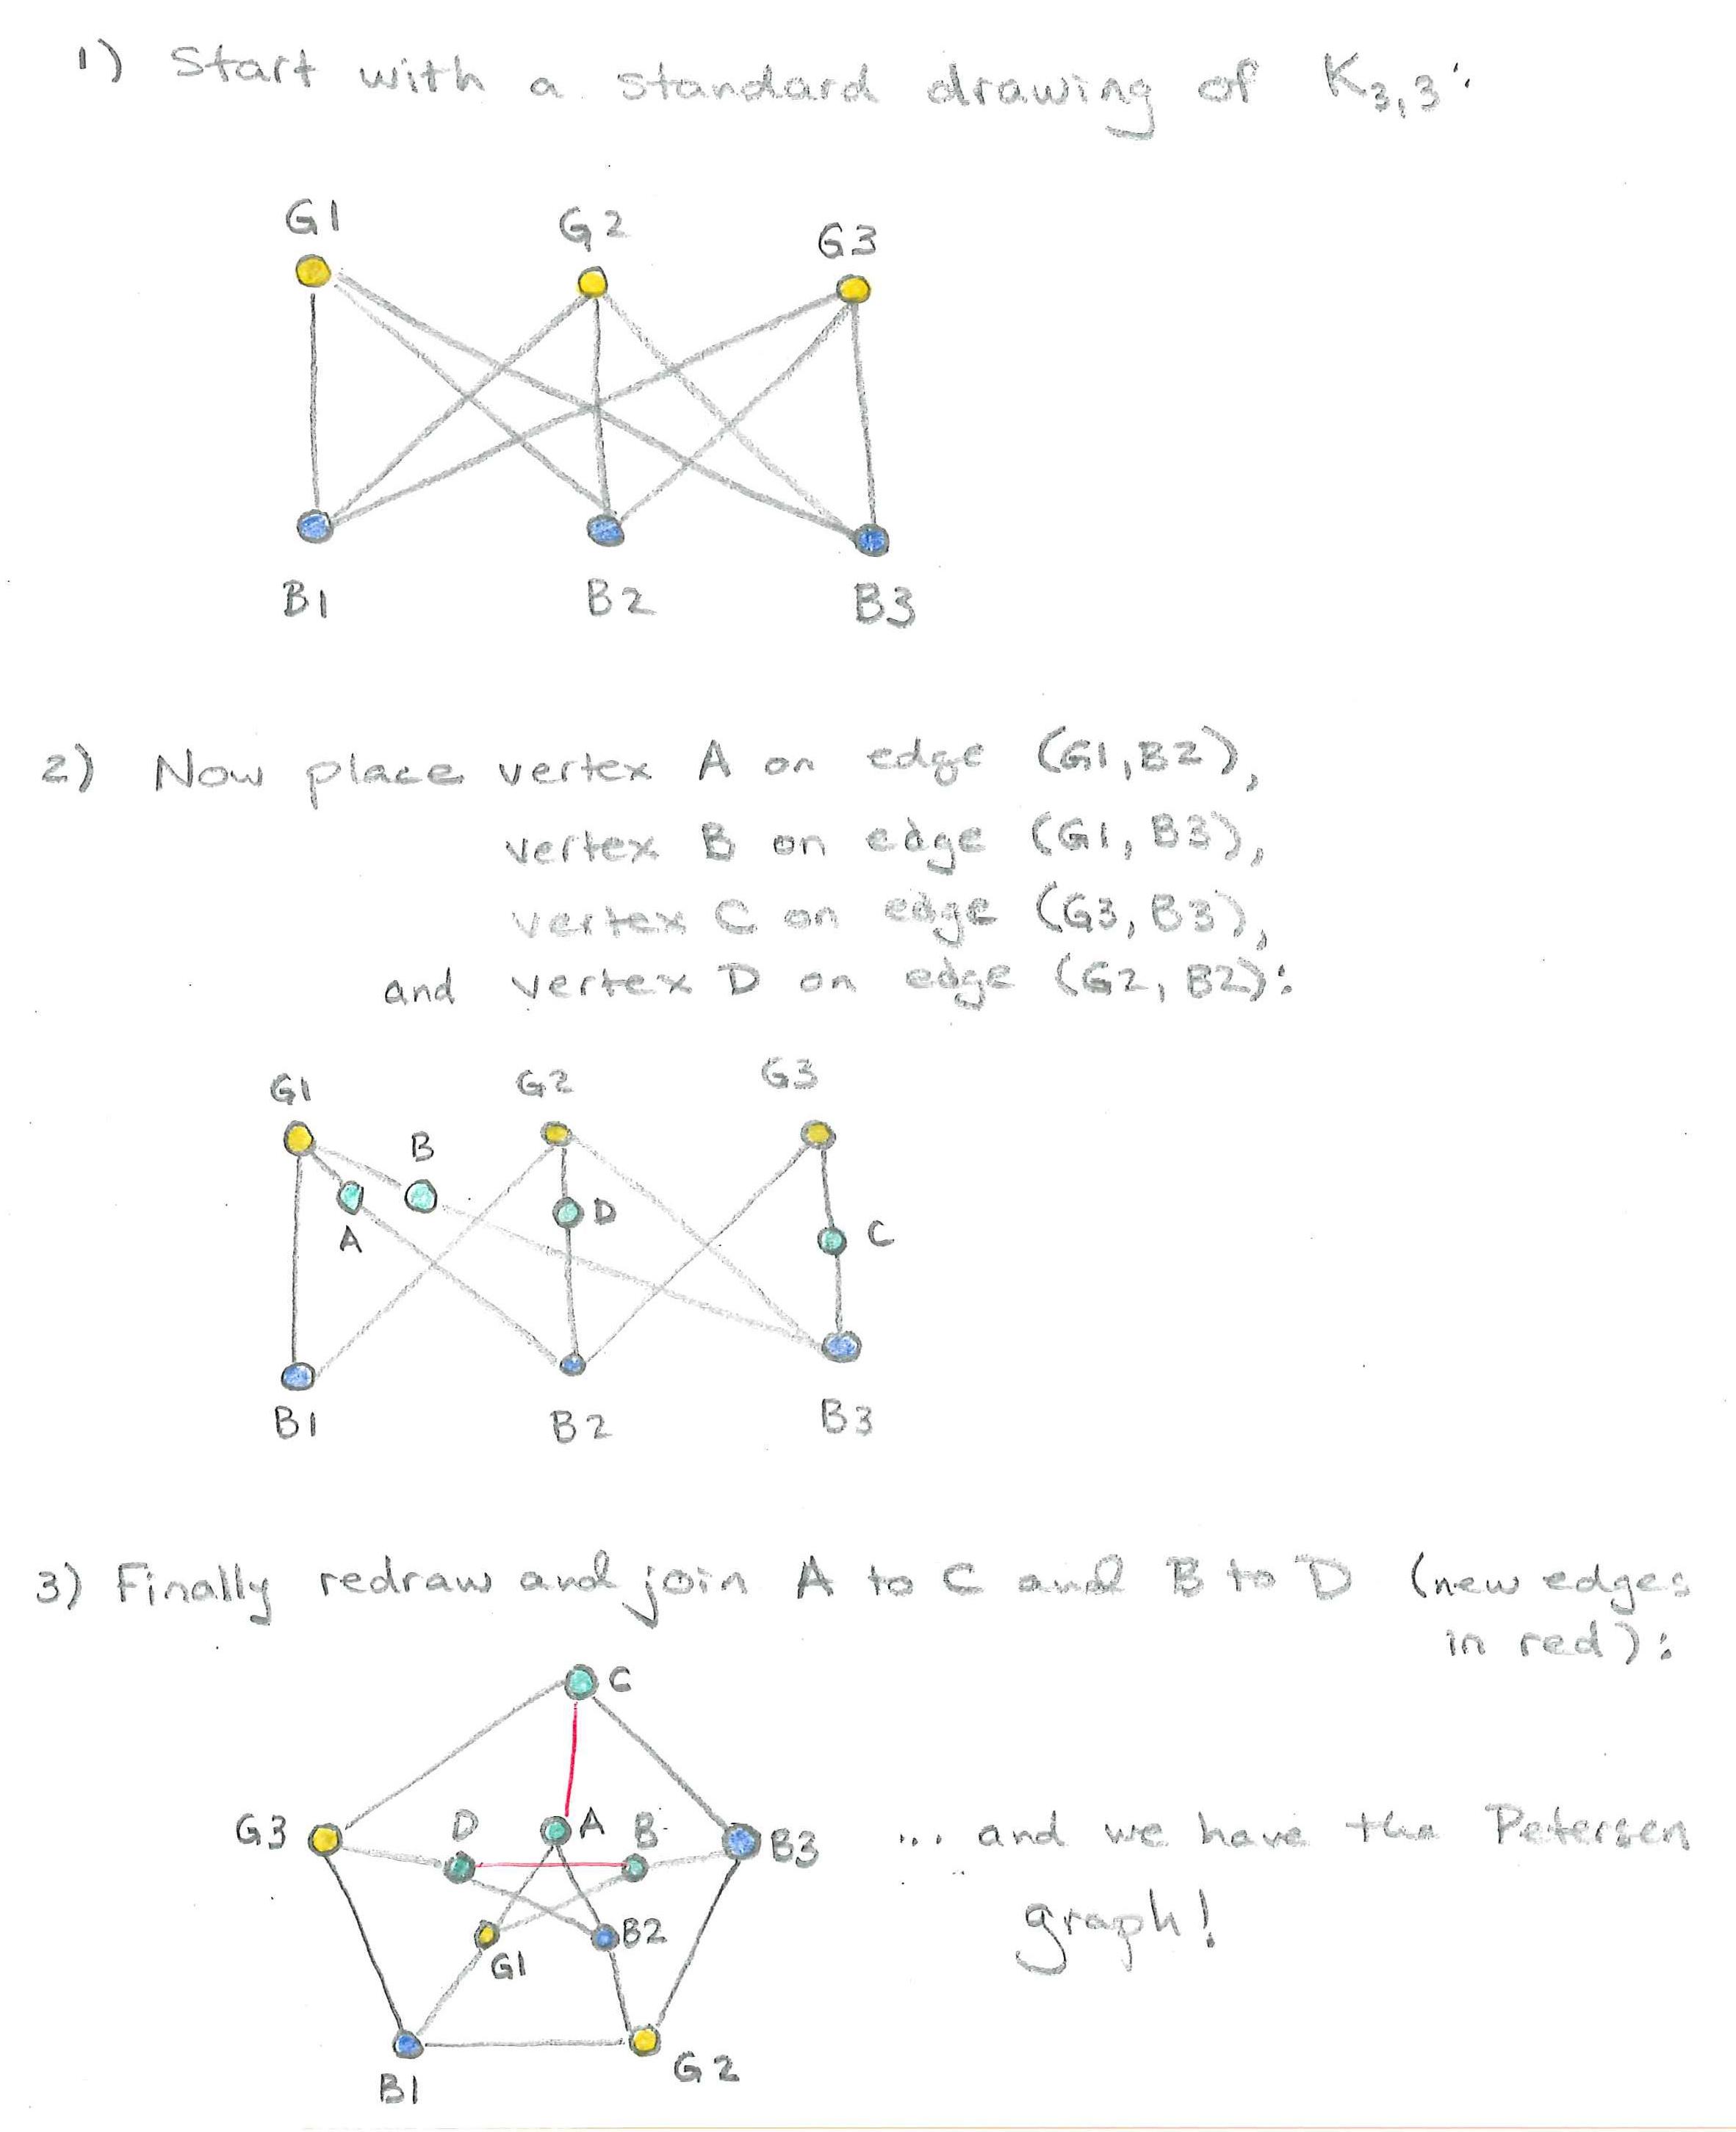 1) Start with a standard drawing of K3,3:
G1 G2 G3
B1 B2 B3
2) Now place vertex A on edge (G1,B2),
vertex B on edge (G1, B3),
vertex C on edge (G3, B3),
and vertex D on edge (G2, B2):
G1 G2 G3
B
A D C
B1 B2 B3
3) Finally redraw and join A to C and B to D (new edges
in red):
C
G3 D A B B3 ... and we have the Petersen
graph!
G1 B2
B1 G2